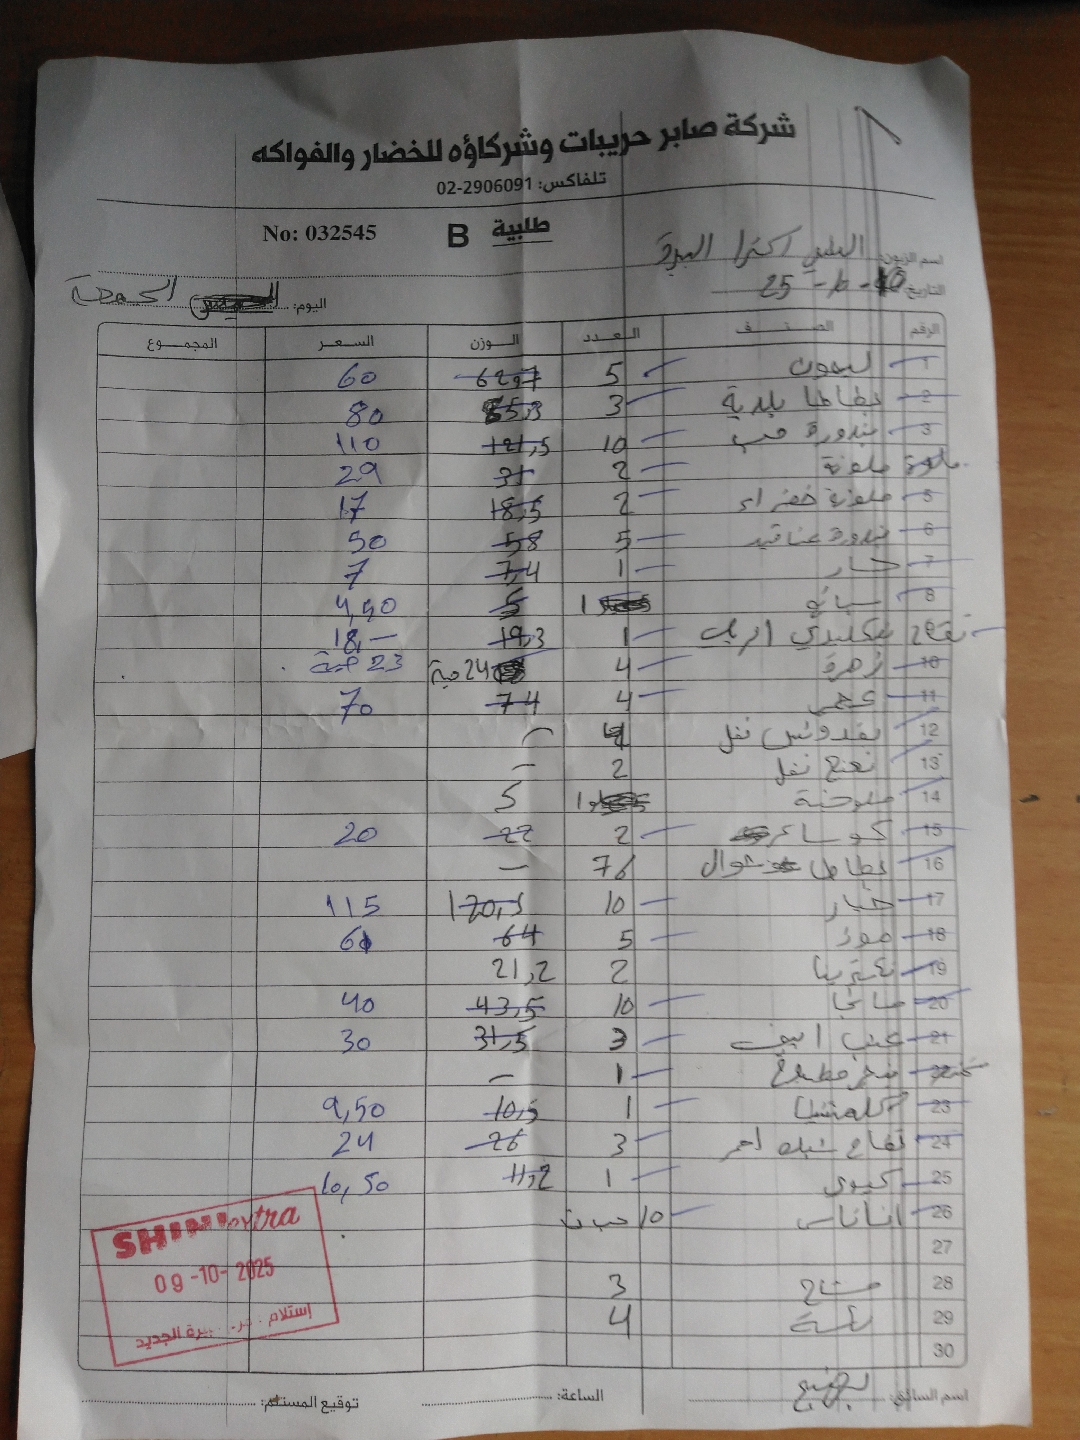 شركة صابر حريبات وشركاؤه للخضار والفواكه
تلفاكس: 02-2906091
No: 032545 B طلبية
اسم الزبون: اكسترا البيرة
التاريخ: 10-10-25
اليوم: الجمعة
الرقم الصنف العدد الوزن السعر المجموع
1 ليمون 5 62,7 60
2 بطاطا بلدية 3 85,3 80
3 بندورة حب 10 121,5 110
ملونة 2 31 29
5 خضراء 2 18,5 17
6 بندورة عناقيد 5 58 50
7 حار 1 7,4 7
8 1 5 4,50
تفاح سكليدي 1 19,3 18,-
10 زهرة 4 24 حبة 23 حبة
11 عجمي 4 74 70
12 بقدونس نخل 4 -
13 نعنع نخل 2 -
14 ملوخية 1 5
15 كوسا 2 22 20
16 بطاطا شوال 76 -
17 خيار 10 120,5 115
18 موز 5 64 61
19 نكترينا 2 21,2
20 10 43,5 40
21 عنب ابيض 3 31,5 30
22 1 -
23 كلمنتينا 1 10,5 9,50
24 تفاح احمر 3 26 24
25 كيوي 1 11,2 10,50
26 اناناس 10 حبات
27
28 3
29 4
30
SHINI extra
09-10-2025
إستلام البيرة الجديد
اسم السائق: الساعة: توقيع المستلم: